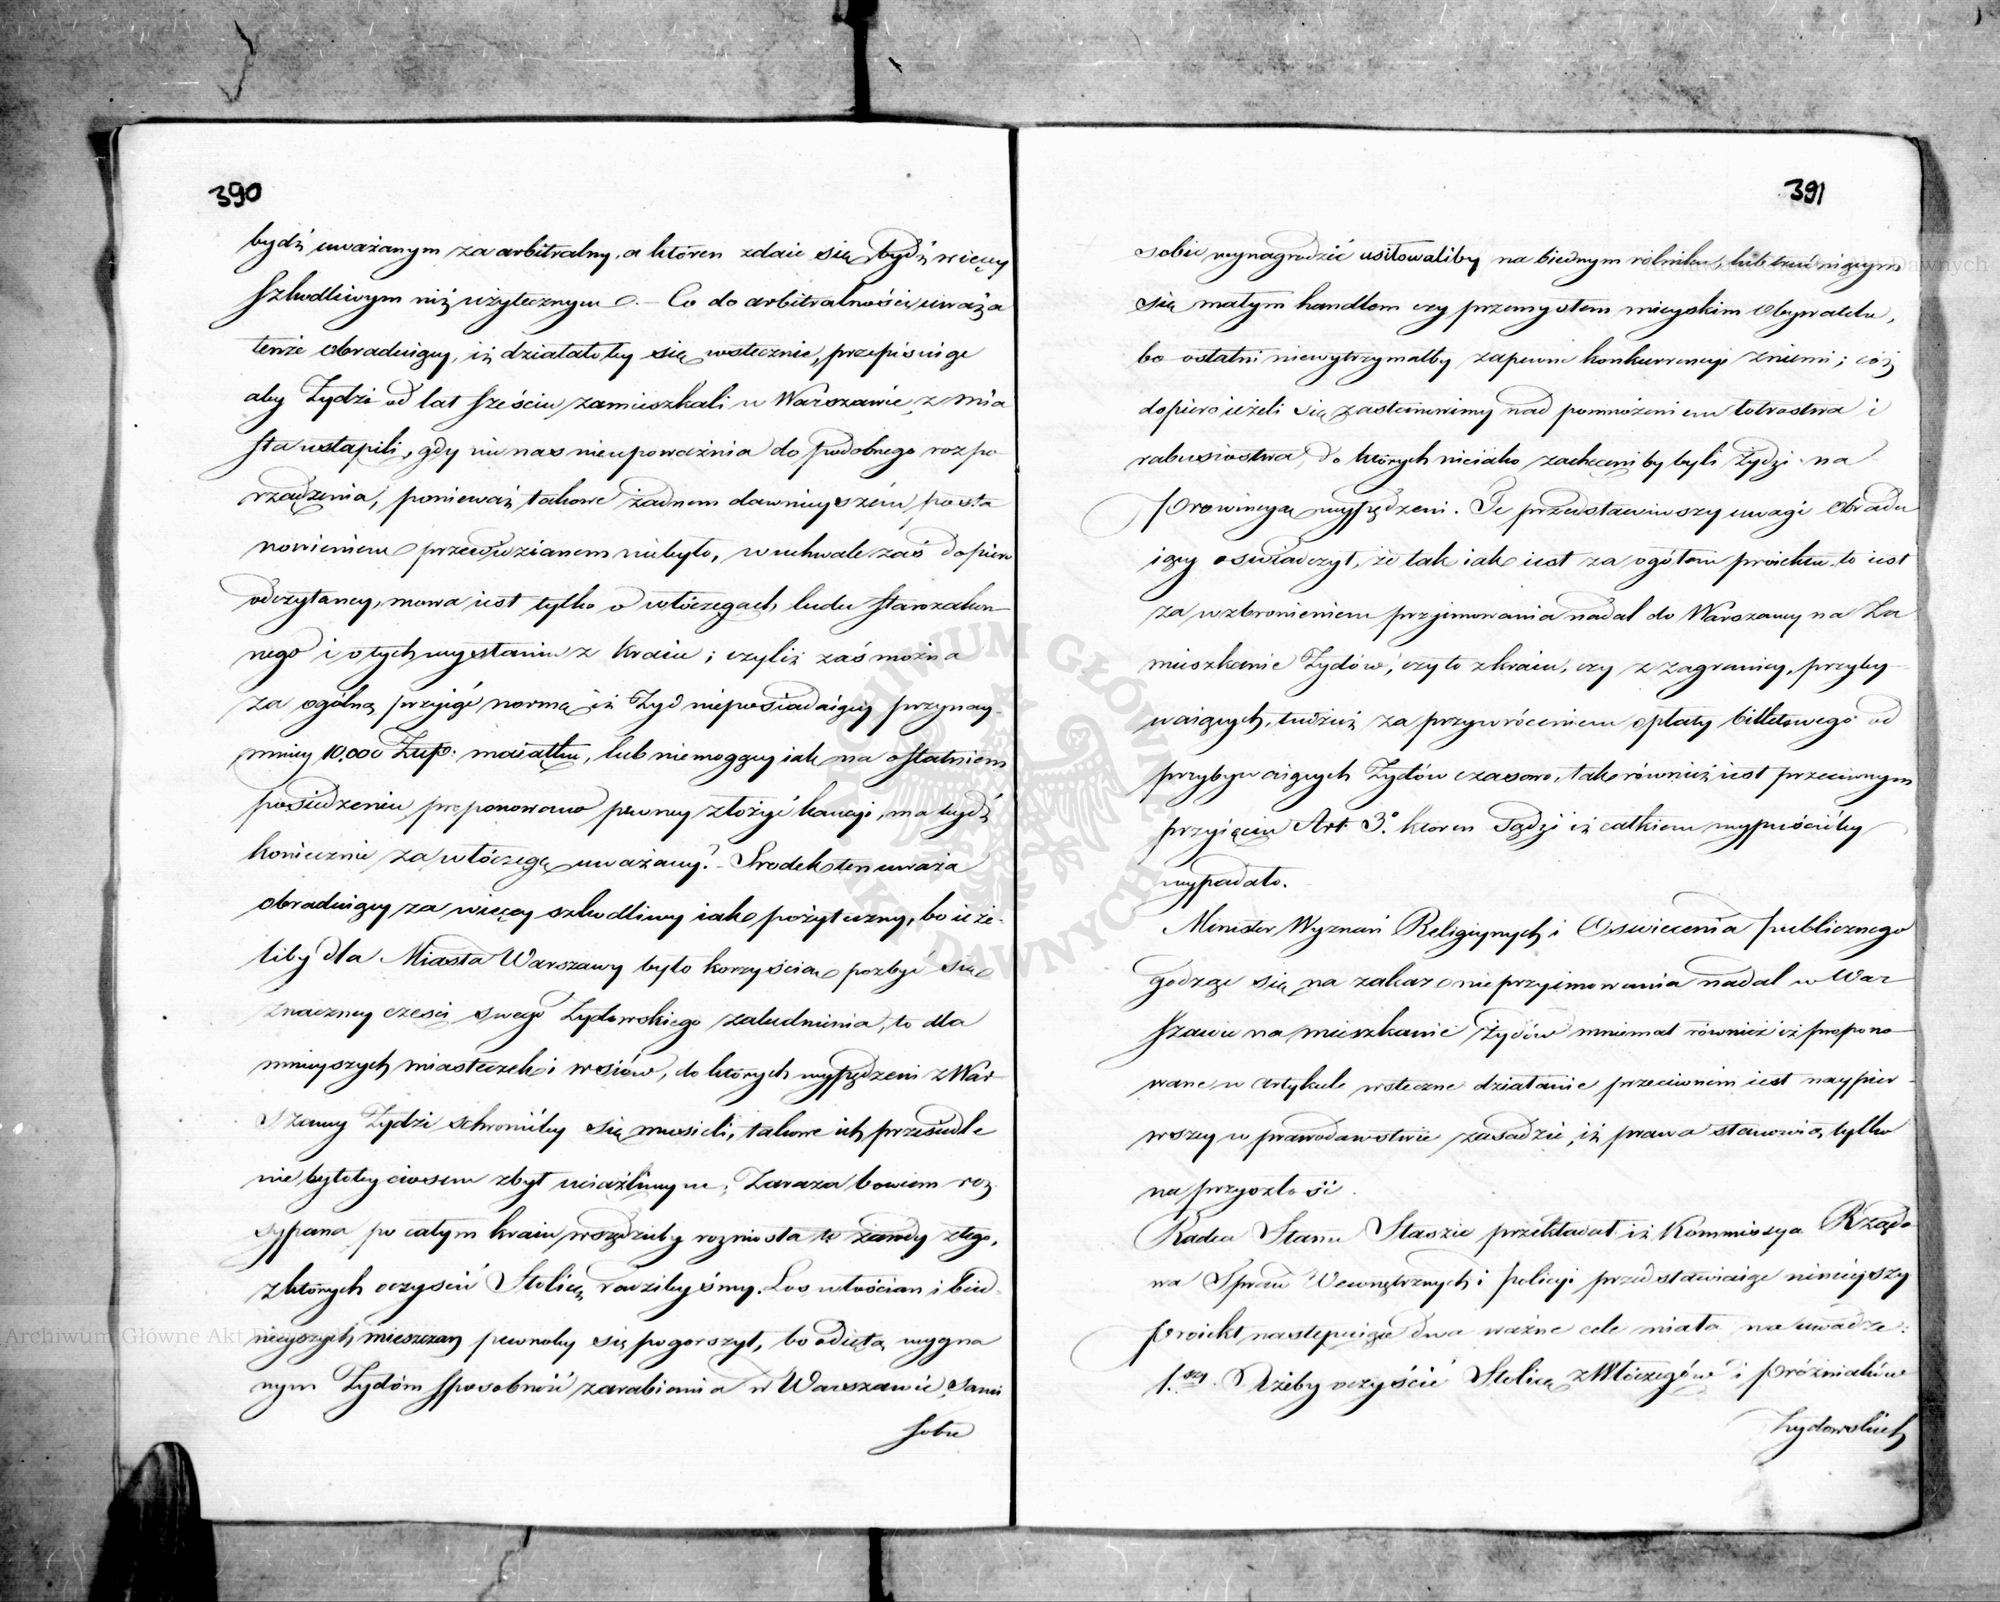 390
bydź uważanym za arbitralny, a któren zdaie się bydź więcey
szkodliwym niż użytecznym. – Co do arbitralności uważa
tenże obraduiący, iż działałoby się wstecznie, przepisuiąc
aby Żydzi od lat sześciu zamieszkali w Warszawie, z mia
sta ustąpili, gdy nic nas nieupoważnia do podobnego rozpo
rządzenia, ponieważ takowe żadnem dawnieyszém posta
nowieniem przewidzianem niebyło, w uchwale zaś dopiero
odczytaney, mowa iest tylko o włóczęgach ludu starozakon
nego i o tych wygnaniu z kraiu; czyliż zaś można
za ogólną przyiąć normę iż Żyd nieposiadaiący przynay-
mniey 10,000 Złłp: maiątku, lub niemogący iak na ostatniem
posiedzeniu proponowano pewney złożyć kaucyi, ma bydź
koniecznie za włóczęgę uważany? – Srodek ten uważa
obraduiący za więcey szkodliwy iak pożyteczny, bo ieże-
liby dla Miasta Warszawy było korzyścią pozbyć się
znaczney części swego Żydowskiego zaludnienia, to dla
mnieyszych miasteczek i wsiów, do których wypędzeni z War-
szawy Żydzi schronićby się musieli, takowe ich przesiedle
nie byłoby ciosem zbyt uciążliwym; Zaraza bowiem roz-
sypana po całym kraiu wszędzieby rozniosła te zawody złego,
z których oczyścić Stolicę radzibyśmy. Los włościan i bied-
nieyszych mieszczan pewnoby się pogorszył, bo odiętą wygna
nym Żydóm sposobność zarabiania w Warszawie, sami
sobie
391
sobie wynagrodzić usiłowaliby na biednym rólniku, lub trudniącym
się małym handlem czy przemysłem mieyskim Obywatelu,
bo ostatni niewytrzymałby zapewne konkurrencyi z niemi; cóż
dopiero ieżeli się zastanowimy nad pomnożeniem łotrostwa i
rabusiostwa, do których nieiako zachęceni by byli Żydzi na
prowincyą wypędzeni. Te przedstawiwszy uwagi Obradu
iący oświadczył, że tak iak iest za ogółem proiektu, to iest
za wzbronieniem przyimowania nadal do Warszawy na Za
mieszkanie Żydów, czy to z kraiu, czy z zagranicy, przyby-
waiących, tudzież za przywróceniem opłaty billetowego od
przybywaiących Żydów czasowo, tak również iest przeciwnym
przyięciu Art. 3º. któren sądzi iż całkiem wypuścićby
wypadało.
Minister Wyznań Religiynych i Oświecenia publicznego
godząc się na zakaz nieprzyimowania nadal w War-
szawie na mieszkanie Żydów mniemał również iż propono-
wane w artykule wsteczne działanie przeciwnem iest naypier-
wszey w prawodawstwie zasadzie, iż prawa stanowią tylko
na przyszłość.
Radca Stanu Staszic przekładał iż Kommissya Rządo
wa Spraw Wewnętrznych i Policyi przedstawiaiąc ninieyszy
proiekt następuiące dwa ważne cele miała na uwadze:
1.szy Ażeby oczyścić Stolicę z Włóczęgów i próżniaków
Żydowskich
Archiwum Główne Akt Dawnych